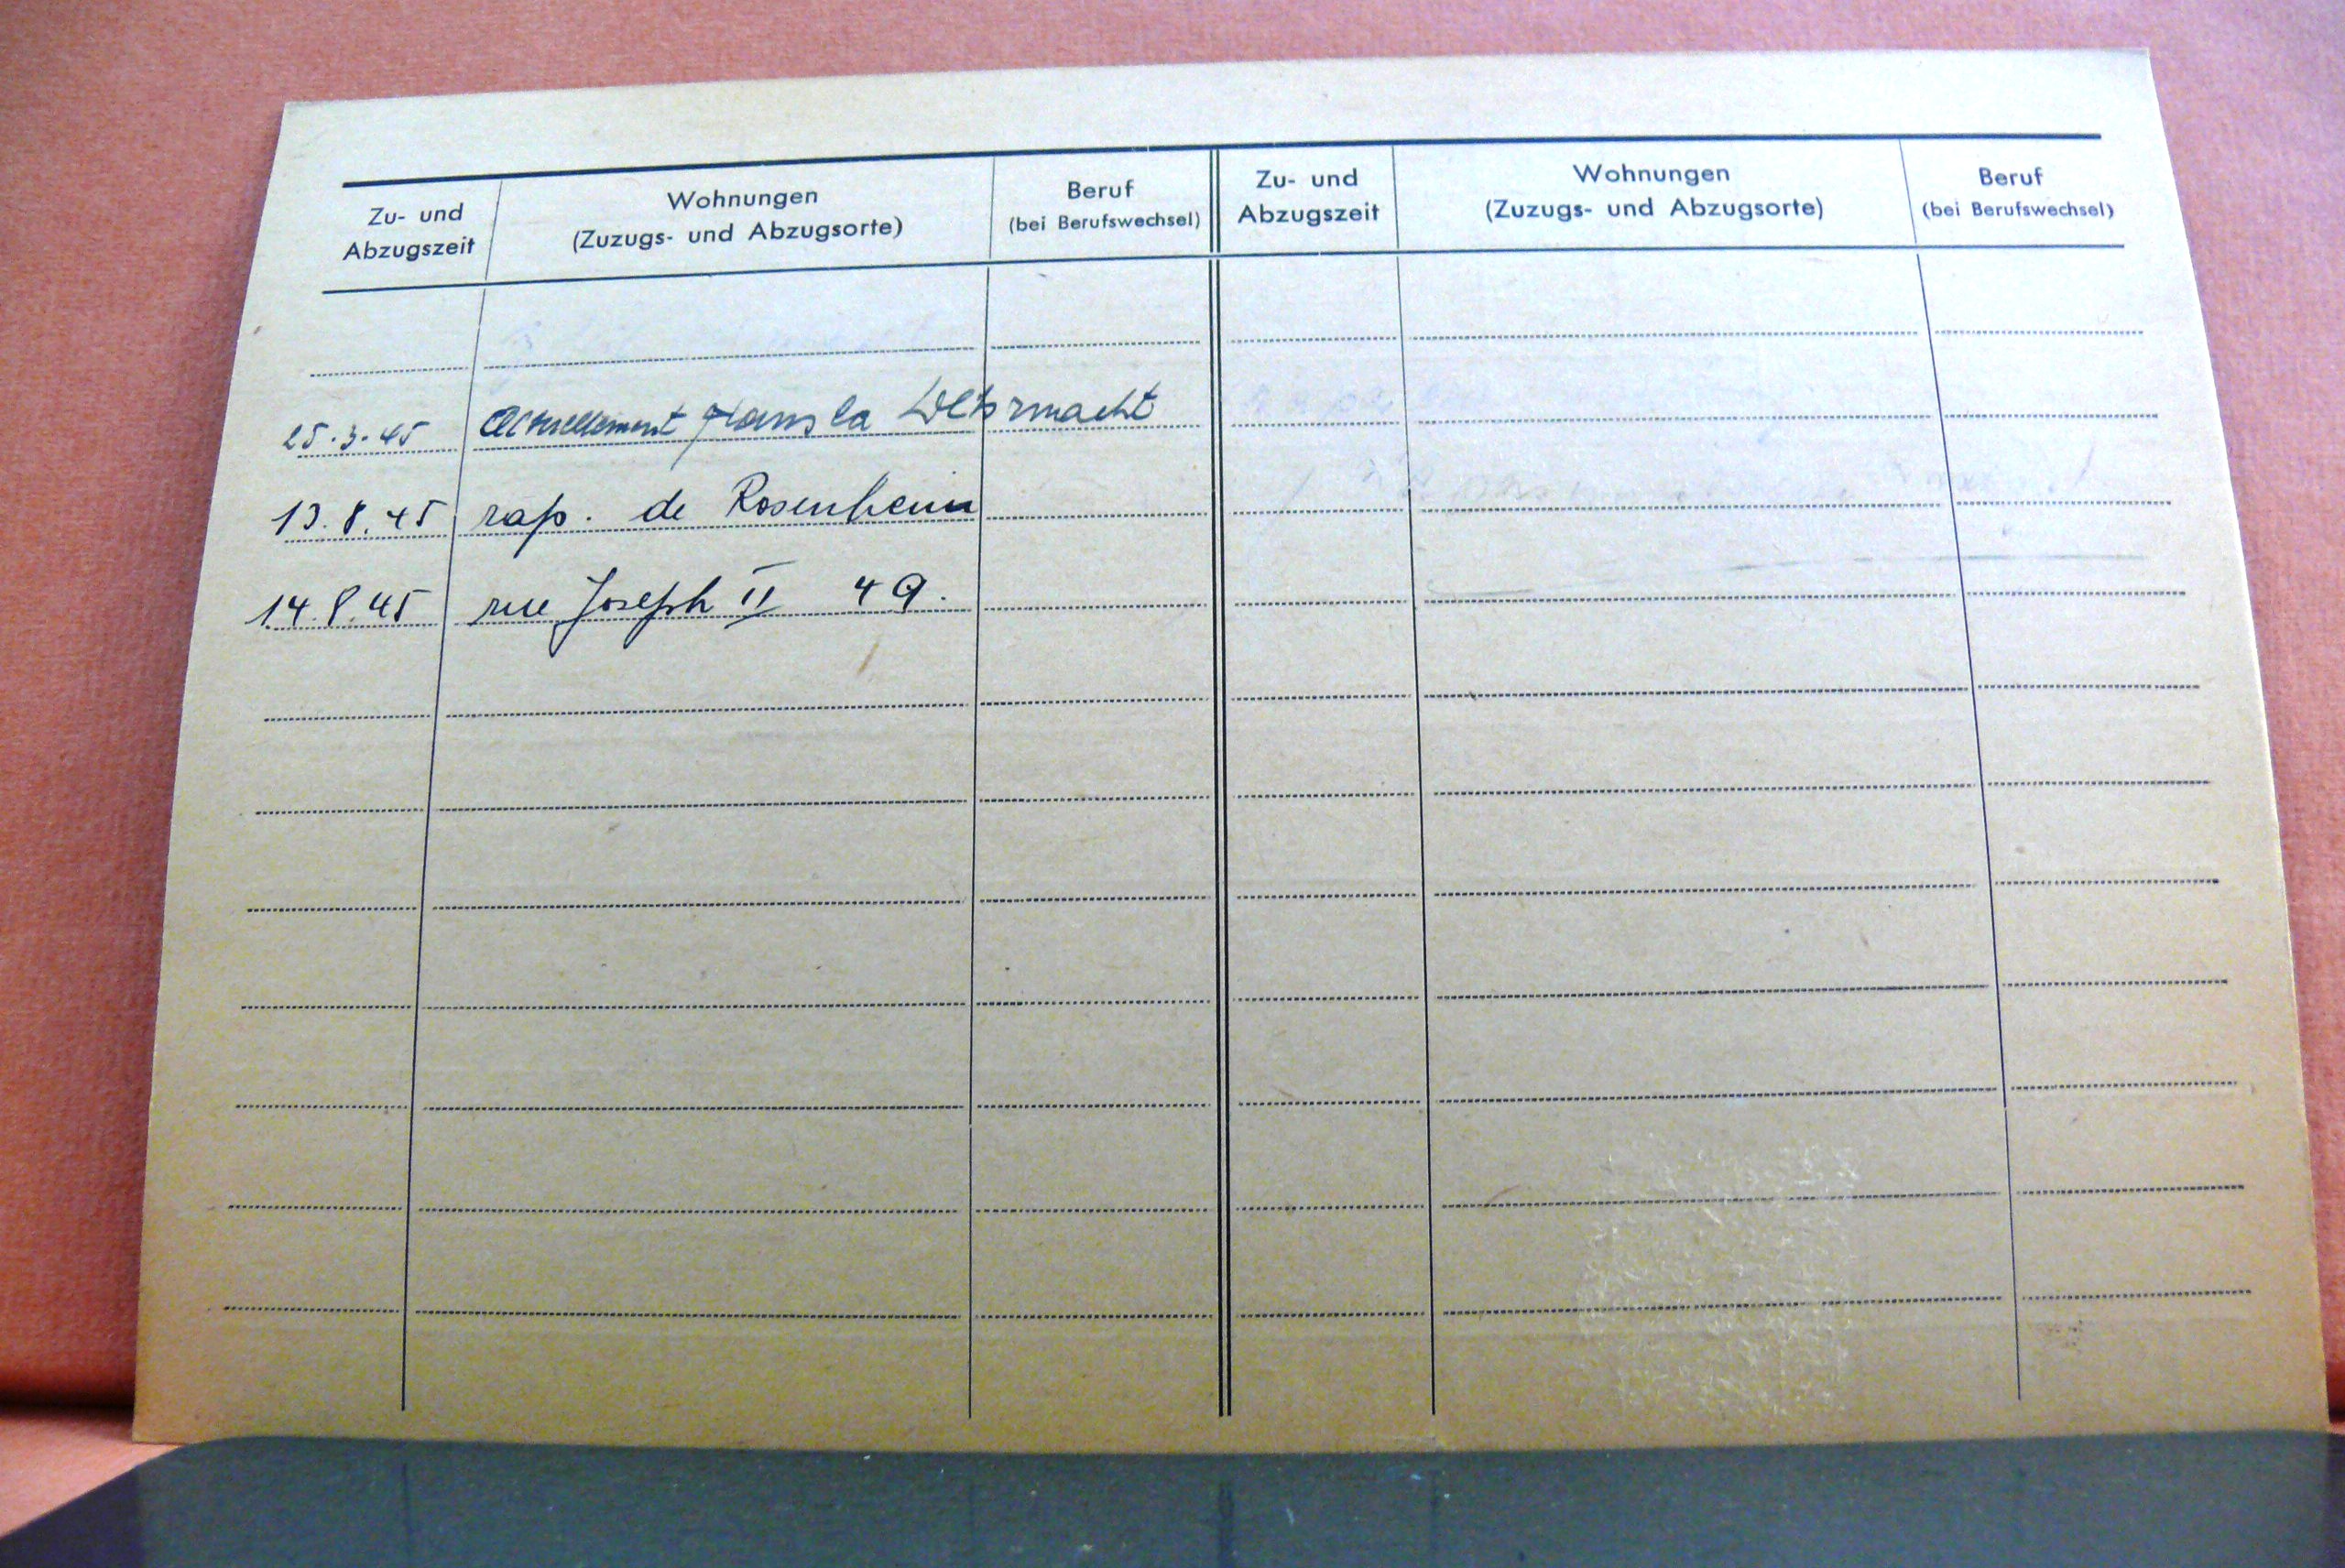 Zu- und
Abzugszeit
Wohnungen
(Zuzugs- und Abzugsorte)
Beruf
(bei Berufswechsel)
Zu- und
Abzugszeit
Wohnungen
(Zuzugs- und Abzugsorte)
Beruf
(bei Berufswechsel)
25.3.45 actuellement dans la Wehrmacht
13.8.45 rap. de Rosenheim
14.8.45 rue Joseph II 49.